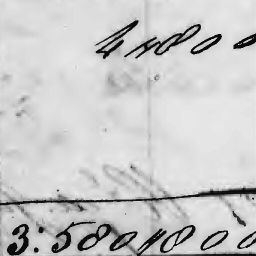 4"800
3:580"800